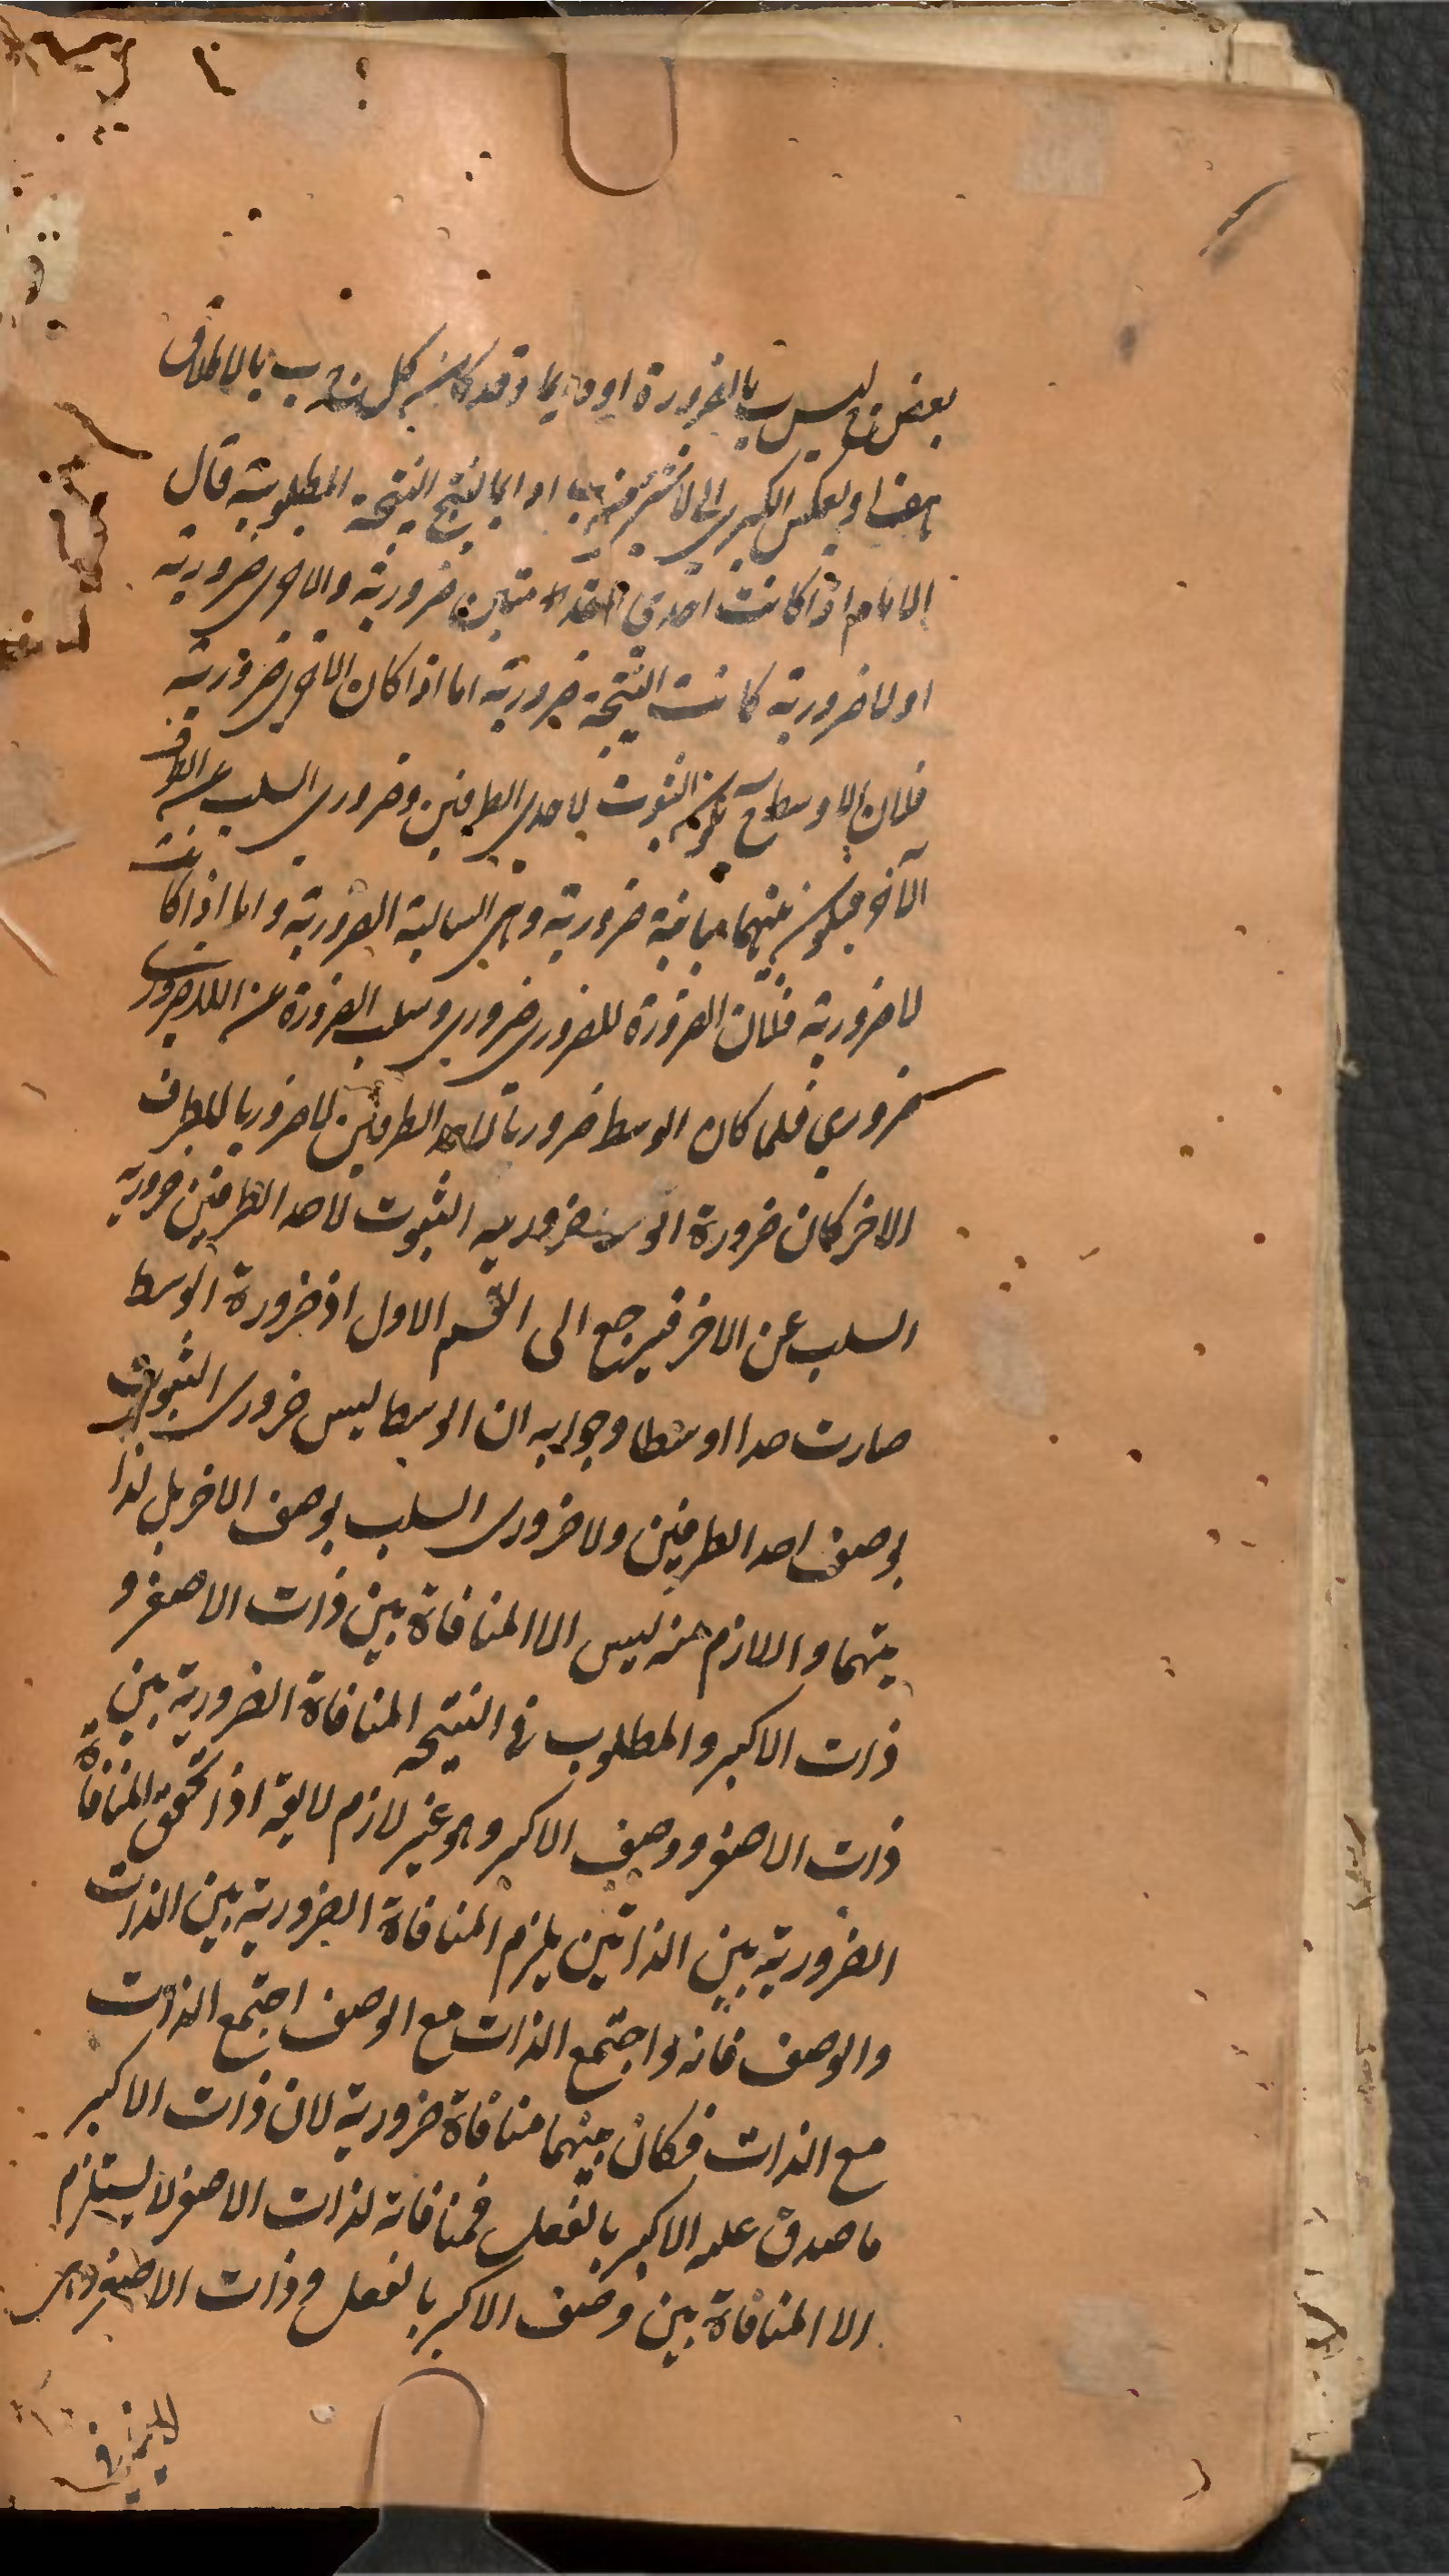 بعض ج ليس ب بالضرورة او دايما وقد كان كل ج ب بالاطلاق
هف او بعكس الكبرى الى لا شى من ب ا دايما لينتج النتيجة المطلوبة قال
الامام اذا كانت احدى المقدمتين ضرورية والاخرى ضرورية
او لا ضرورية كانت النتيجة ضرورية اما اذا كان الاخرى ضرورية
فلان الاوسط ح يكون الثبوت لاحدى الطرفين وضرورى السلب عن الطرف
الآخر فيكون بينهما مباينة ضرورية وهى السالبة الضرورية واما اذا كانت
لا ضرورية فلان الضرورة للضرورى ضرورى وسلب الضرورة عن اللاضرورى
ضرورى فلما كان الوسط ضروريا لاحد الطرفين لا ضروريا للطرف
الاخر كان ضرورة الوسط ضرورية الثبوت لاحد الطرفين ضرورية
السلب عن الاخر فيرجع الى القسم الاول اذ ضرورة الوسط
صارت حدا اوسطا وجوابه ان الوسط ليس ضرورى الثبوت
بوصف احد الطرفين ولا ضرورى السلب بوصف الاخر بل لذا
تيهما واللازم منه ليس الا المنافاة بين ذات الاصغر و
ذات الاكبر والمطلوب فى النتيجه المنافاة الضرورية بين
ذات الاصغر ووصف الاكبر وهو غير لازم لا يق اذا تحقق المنافاة
الضرورية بين الذاتين يلزم المنافاة الضرورية بين الذات
والوصف فانه لو اجتمع الذات مع الوصف اجتمع الذات
مع الذات فكان بينهما منافاة ضرورية لان ذات الاكبر
ما صدق عليه الاكبر بالفعل فمنافاته لذات الاصغر لا يستلزم
الا المنافاة بين وصف الاكبر بالفعل وذات الاصغر وهى